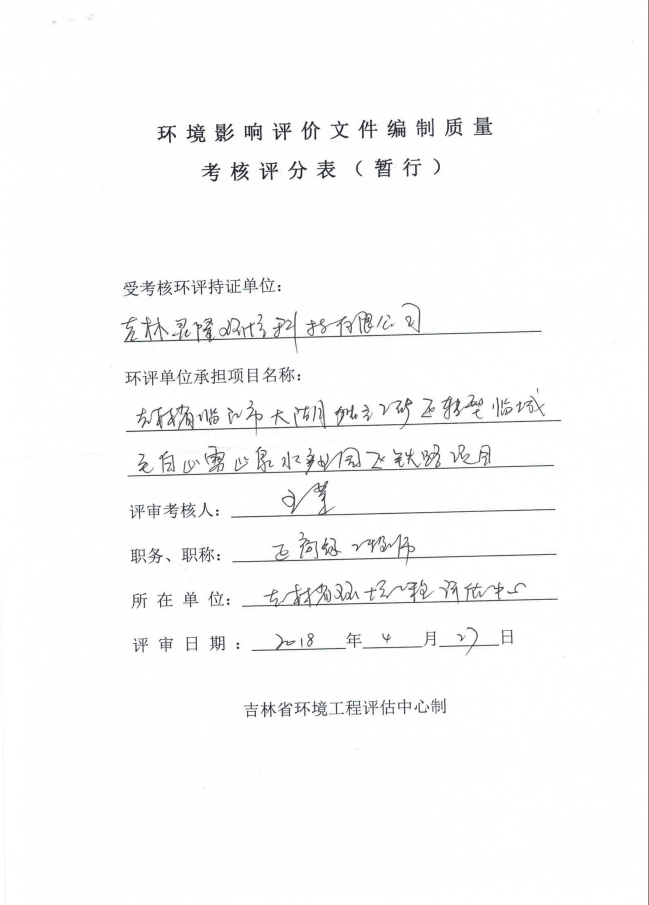 环境影响评价文件编制质量
考核评分表(暂行)
受考核环评持证单位:
吉林 科技有限公司
环评单位承担项目名称:
吉林省临江市大湖 转型临城
长白山 山泉水产业园 铁路项目
评审考核人:
职务、职称: 正高级工程师
所在单位: 吉林省环境工程评估中心
评审日期: 2018 年 4 月 27 日
吉林省环境工程评估中心制